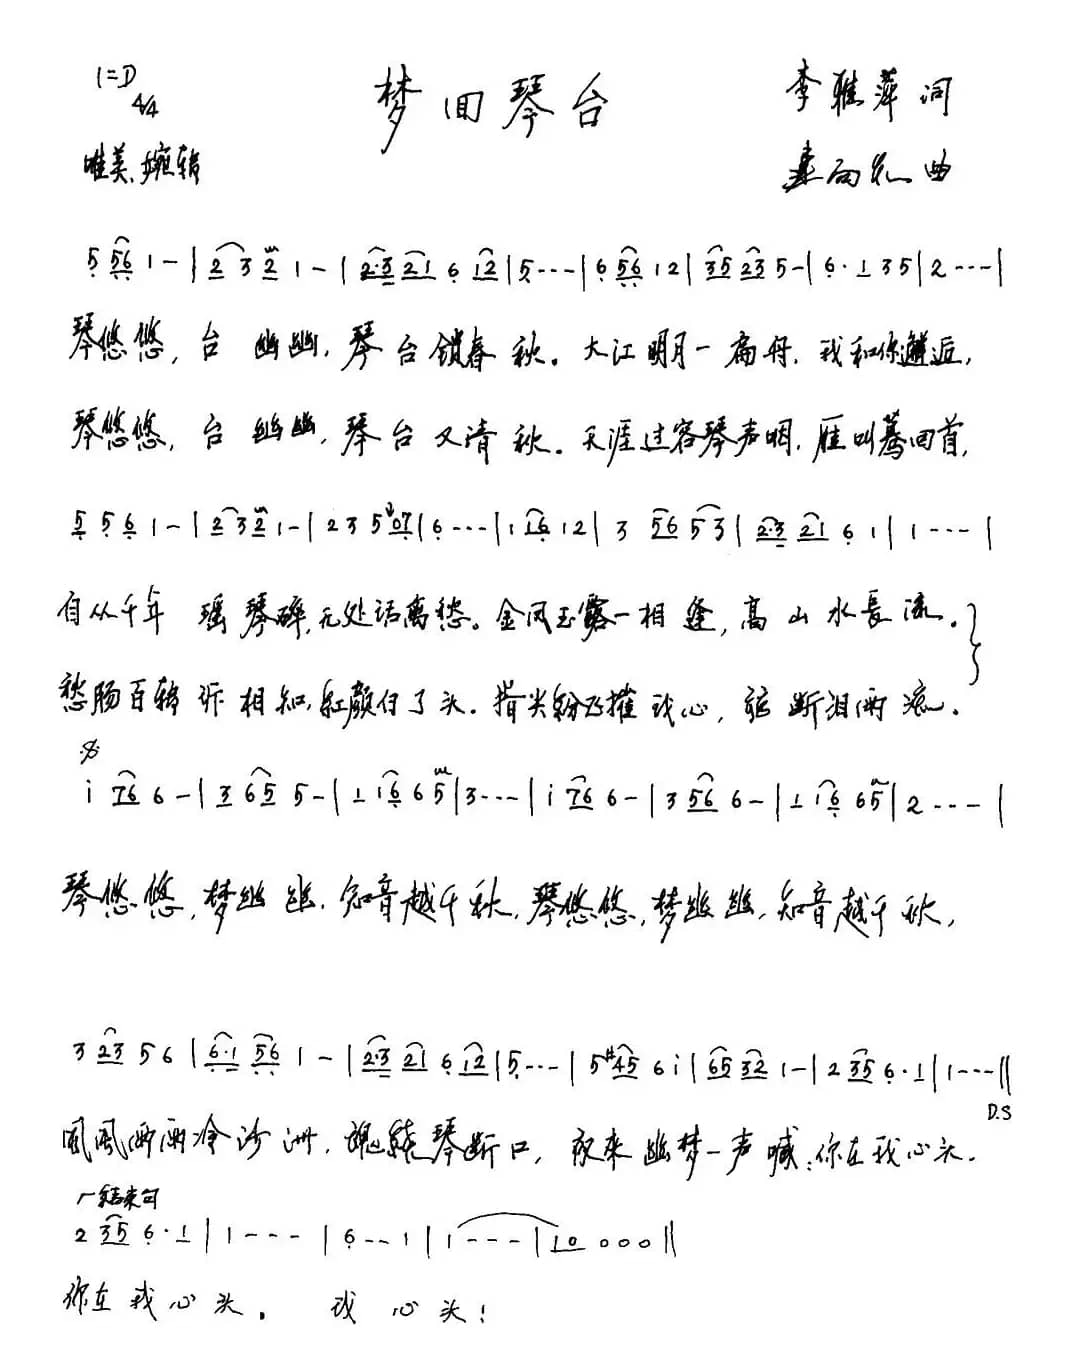 1=D 梦回琴台 李雅萍 词
4/4
唯美、婉转 雨 曲
5 56 1 - | 2 3 2 1 - | 2·3 21 6 12 | 5 - - - | 6 56 12 | 35 23 5 - | 6 · 1 3 5 | 2 - - - |
琴悠悠，台 幽幽，琴台锁春秋。大江明月一扁舟，我和你邂逅，
琴悠悠，台 幽幽，琴台又清秋。天涯过客琴声咽，雁叫蓦回首，
5 5 6 1 - | 2 3 2 1 - | 2 3 5 07 | 6 - - - | 1 16 12 | 3 56 53 | 2·3 21 6 1 | 1 - - - |
自从千年 瑶琴碎，无处话离愁。金风玉露一相逢，高山水長流。
愁肠百转诉相知，红颜付了头。指尖纷飞摧我心，弦断泪两流。
i 76 6 - | 3 65 5 - | 1 16 65 | 3 - - - | i 76 6 - | 3 56 6 - | 1 16 65 | 2 - - - |
琴悠悠，梦幽幽，知音越千秋，琴悠悠，梦幽幽，知音越千秋，
3 23 5 6 | 6·1 56 1 - | 2·3 21 6 12 | 5 - - - | 5 #45 6 i | 65 32 1 - | 2 35 6 · 1 | 1 - - - ||
D.S
风风雨雨冷沙洲，魂绕琴断口，夜来幽梦一声喊：你在我心头。
结束句
2 35 6 · 1 | 1 - - - | 6 - - 1 | 1 - - - | 10 0 0 0 ||
你在我心头。 我心头！